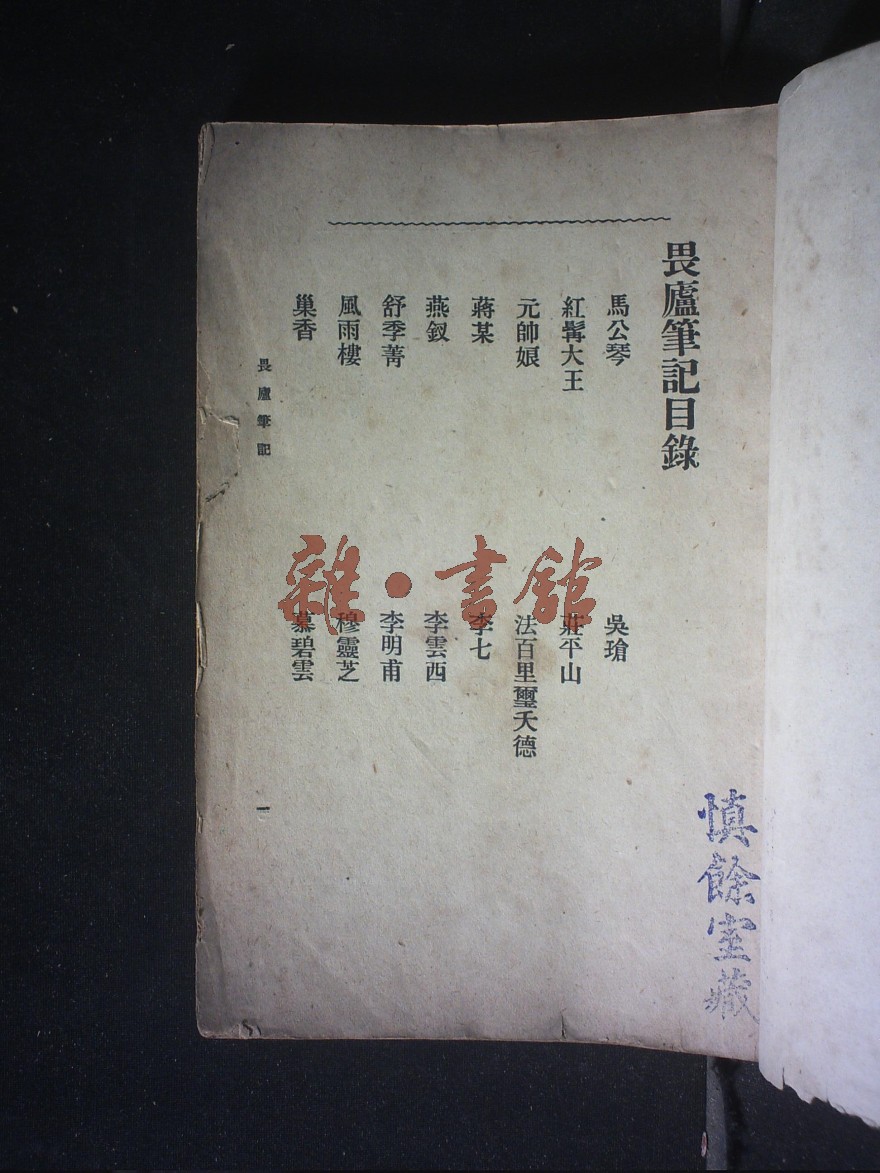 畏廬筆記目錄
馬公琴
吳瑲
紅髯大王
莊平山
元帥娘
法百里璽天德
蔣某
李七
燕釵
李雲西
舒季菁
李明甫
風雨樓
穆靈芝
巢香
慕碧雲
畏廬筆記
一
慎餘室藏
雜·書館